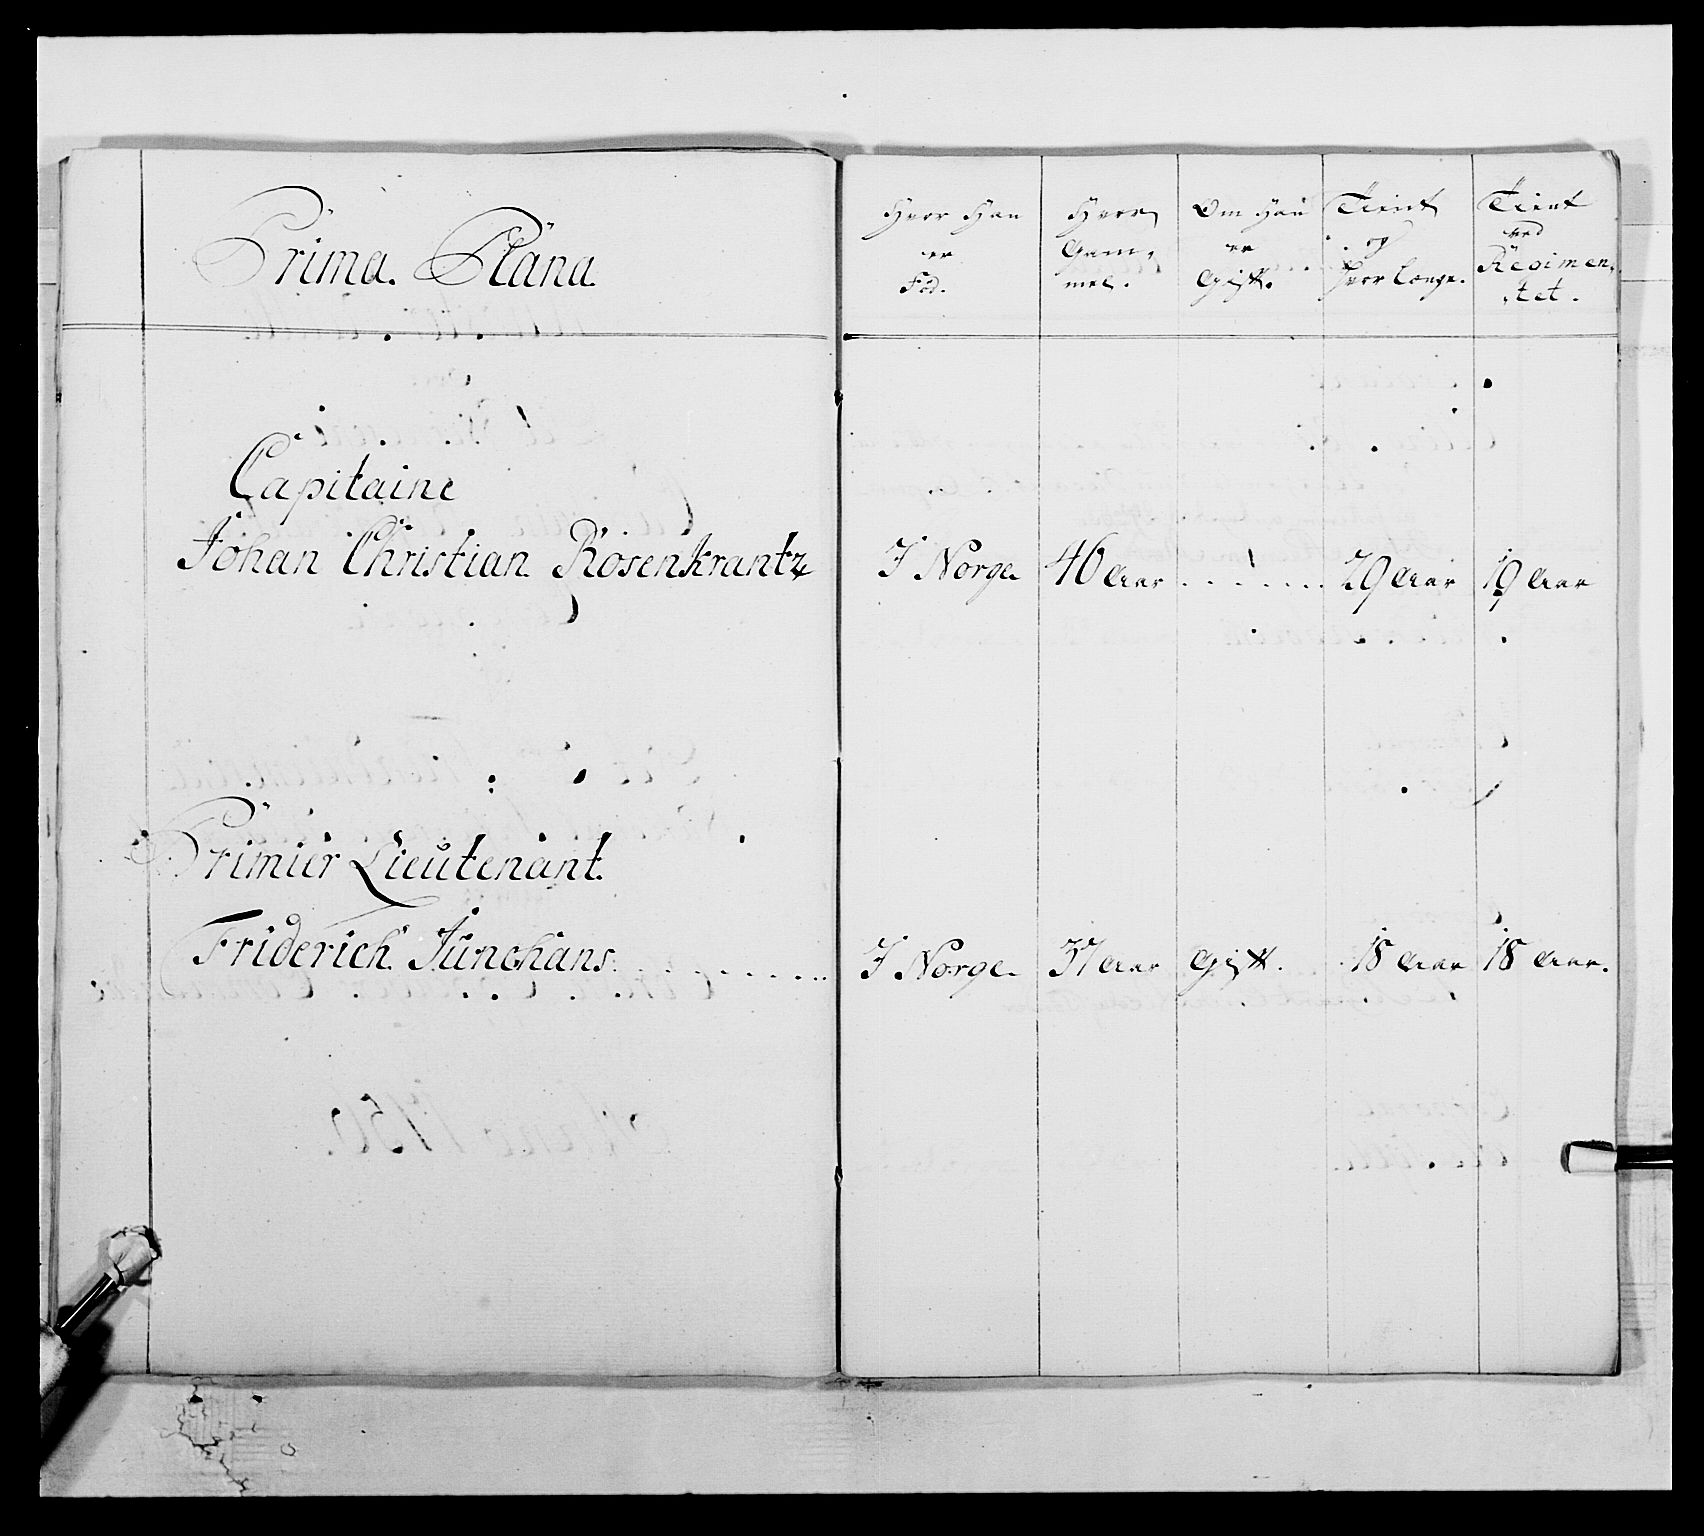 Prima Plana
Hvor Han
er
Fød.
Hvor
Gam,
mel.
Om Han
er
Gift.
Tient
og
hvor længe.
Tient
ved
Regimen,
,tet.
Capitaine
Johan Christian Rosenkrantz
I Norge
46 Aar
29 Aar
19 Aar
Primier Lieutenant.
Friderich Junghans
I Norge
37 Aar
Gift.
18 Aar
18 Aar.